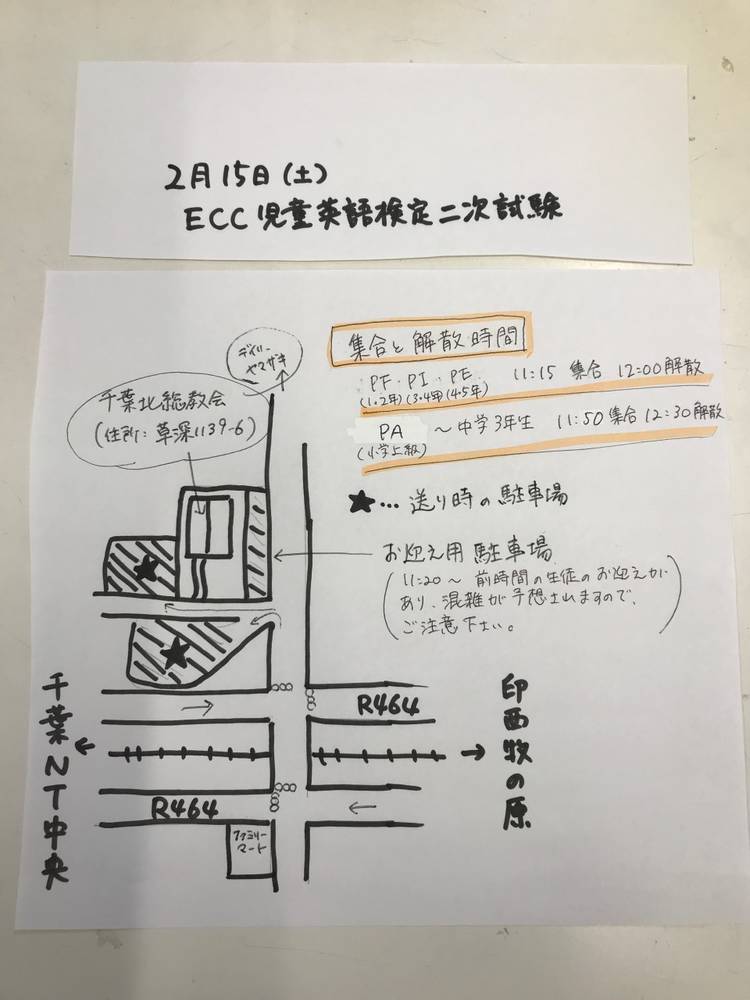 2月15日(土)
ECC児童英語検定二次試験
集合と解散時間
PF・PI・PE 11:15 集合 12:00解散
(1・2年)(3・4年)(4・5年)
PA ～中学3年生 11:50 集合 12:30解散
(小学上級)
★…送り時の駐車場
お迎え用駐車場
(11:20～前時間の生徒のお迎えが
あり、混雑が予想されますので、
ご注意下さい。)
デイリー
ヤマザキ
千葉北総教会
(住所:草深1139-6)
★
★
千葉NT中央
印西牧の原
R464
R464
ファミリー
マート